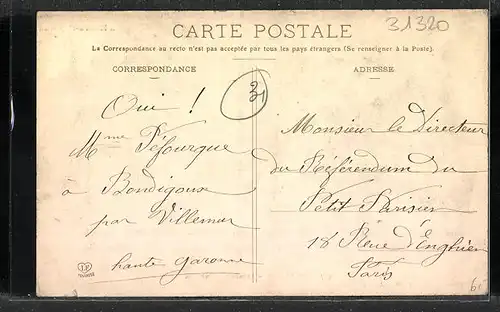 CARTE POSTALE
31320
La Correspondance au recto n'est pas acceptée par tous les pays étrangers (Se renseigner à la Poste).
CORRESPONDANCE
Oui !
Mme Péfourque
à Bondigoux
par Villemur
haute garonne
31
ADRESSE
Monsieur le Directeur
du Référendum du
Petit Parisien
18 Rue d'Enghien
Paris